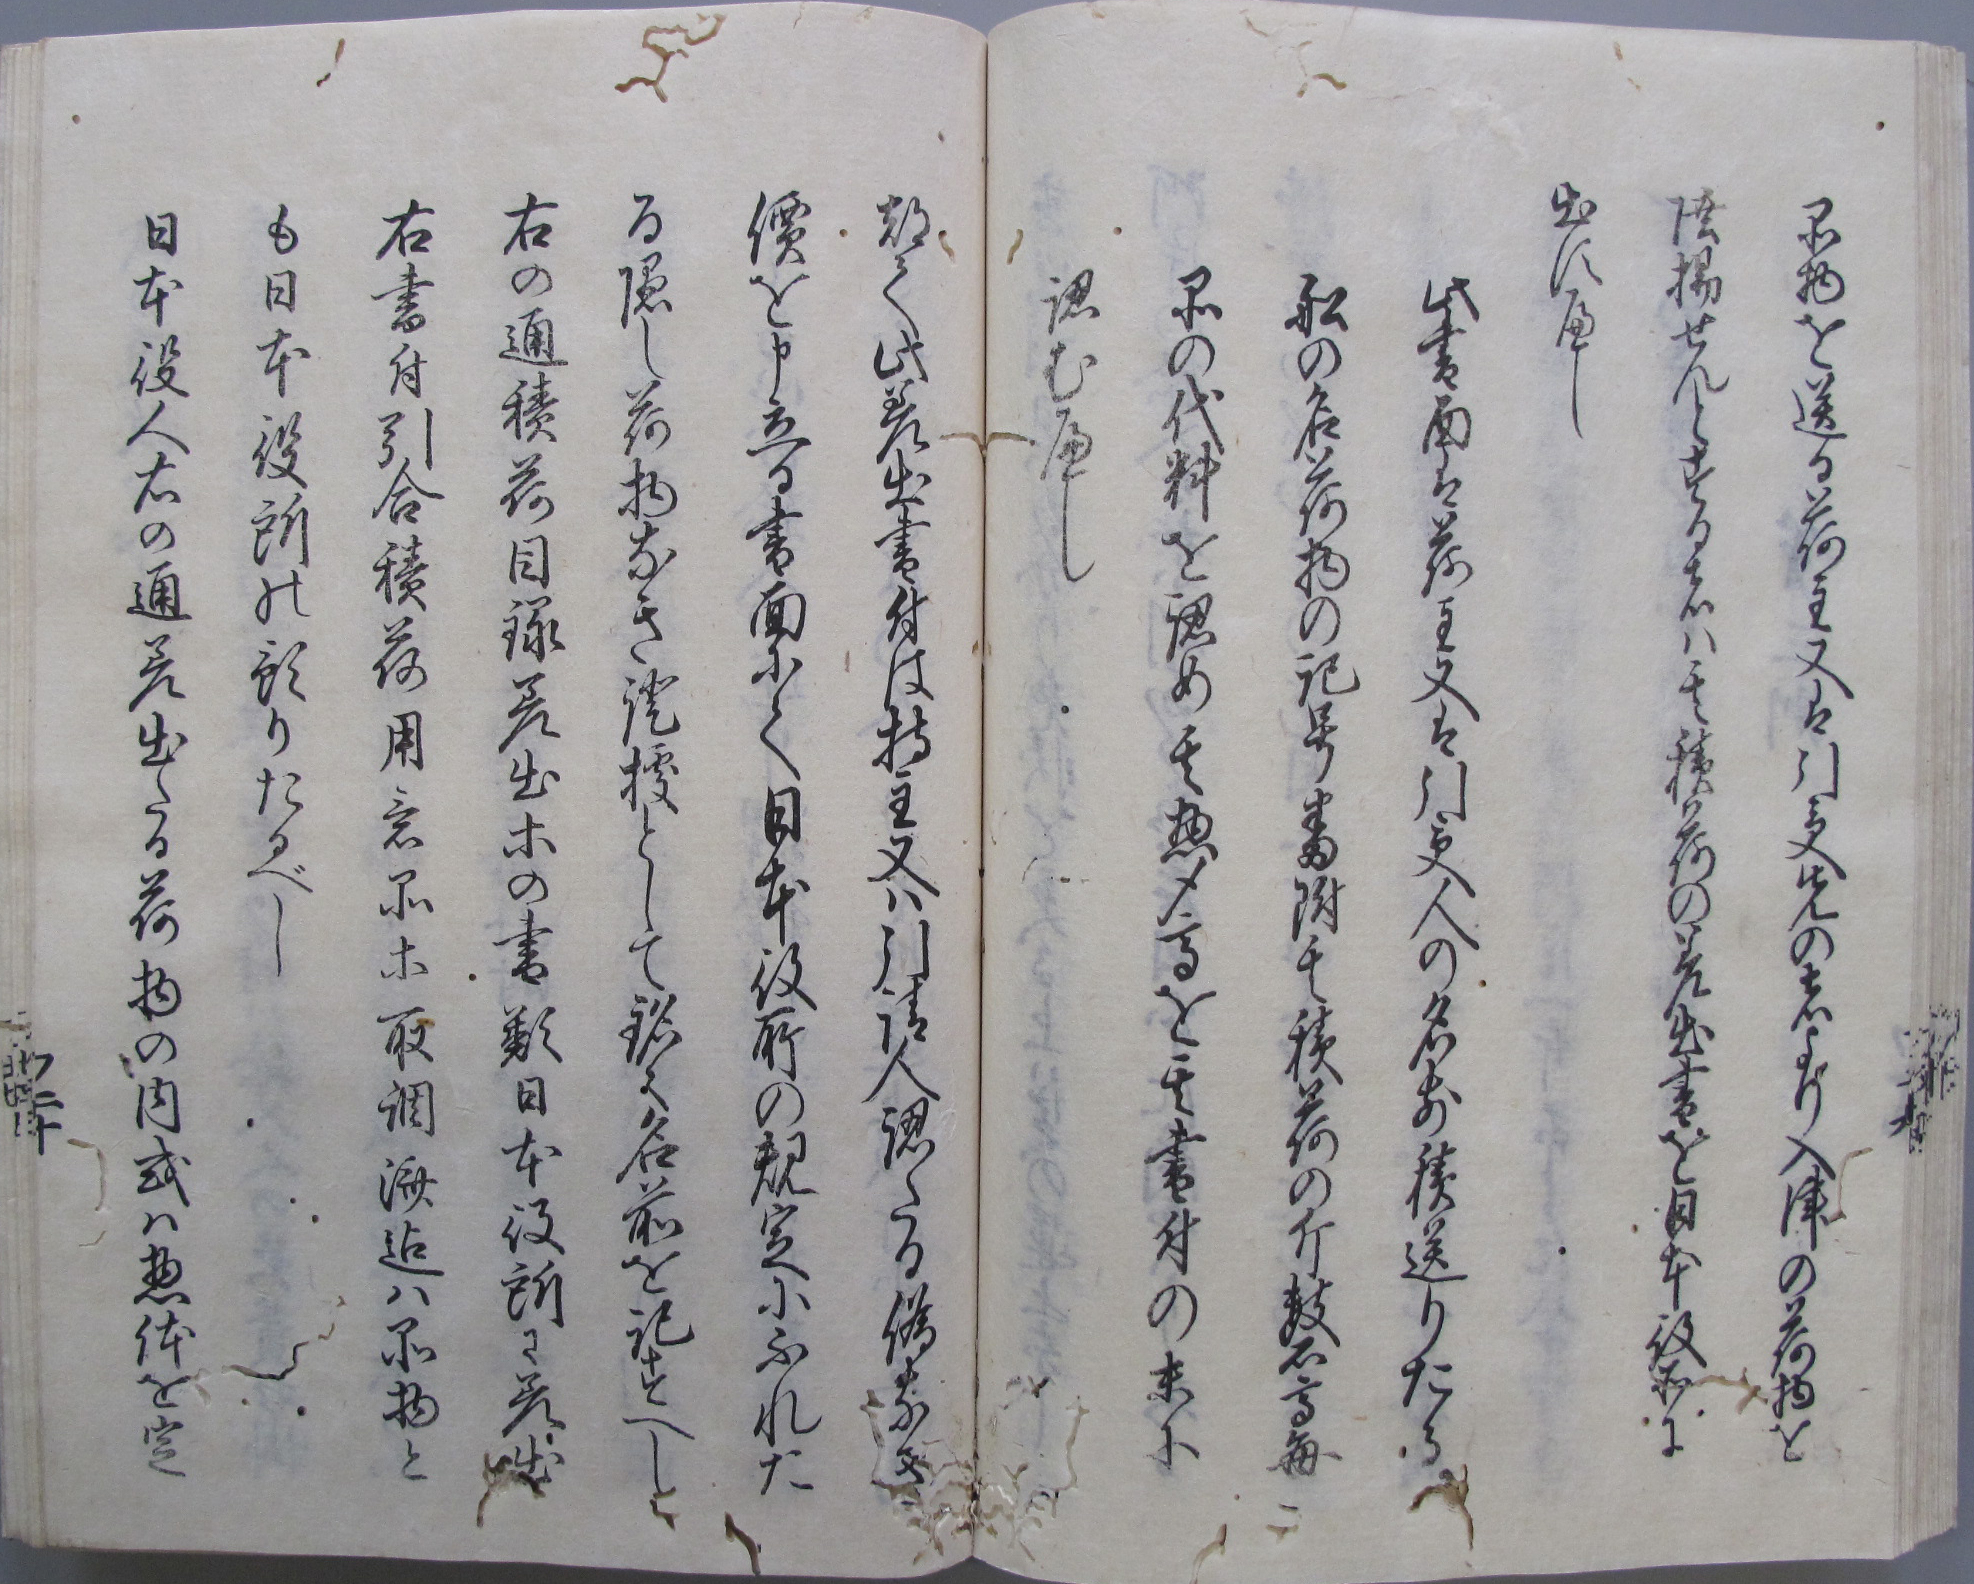 品物を送る荷主又は引受先の者より入津の荷物を
陸揚せんとする者ハ其積荷の差出書を日本役所に
出すへし
此書面は荷主又は引受人の名前積送りたる
船の名荷物の記号番附其積荷の斤数石高毎
品の代料を認め其惣〆高を其書付の末に
認むへし
都て此差出書付は持主又ハ引請人認たる偽なき
價を申立る書面にて日本役所の規定にふれた
る隠し荷物なき證據として銘々名前を記すへし
右の通積荷目録差出ホの書類日本役所に差出
右書付引合積荷用意品ホ取調済迄ハ品物と
も日本役所の預りたるべし
日本役人右の通差出たる荷物の内或ハ惣体を定